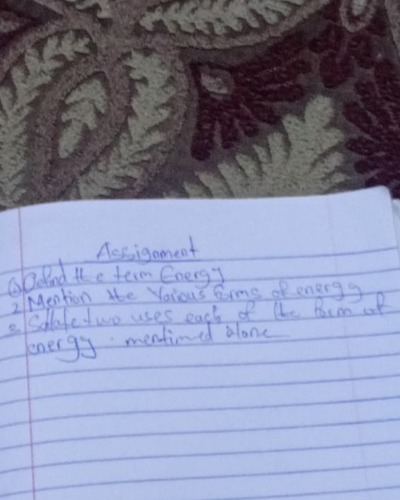 Assignment
① Defind the term Energy
2 Mention the Various forms of energy
3 State two uses each of the form of
energy . mentioned alone